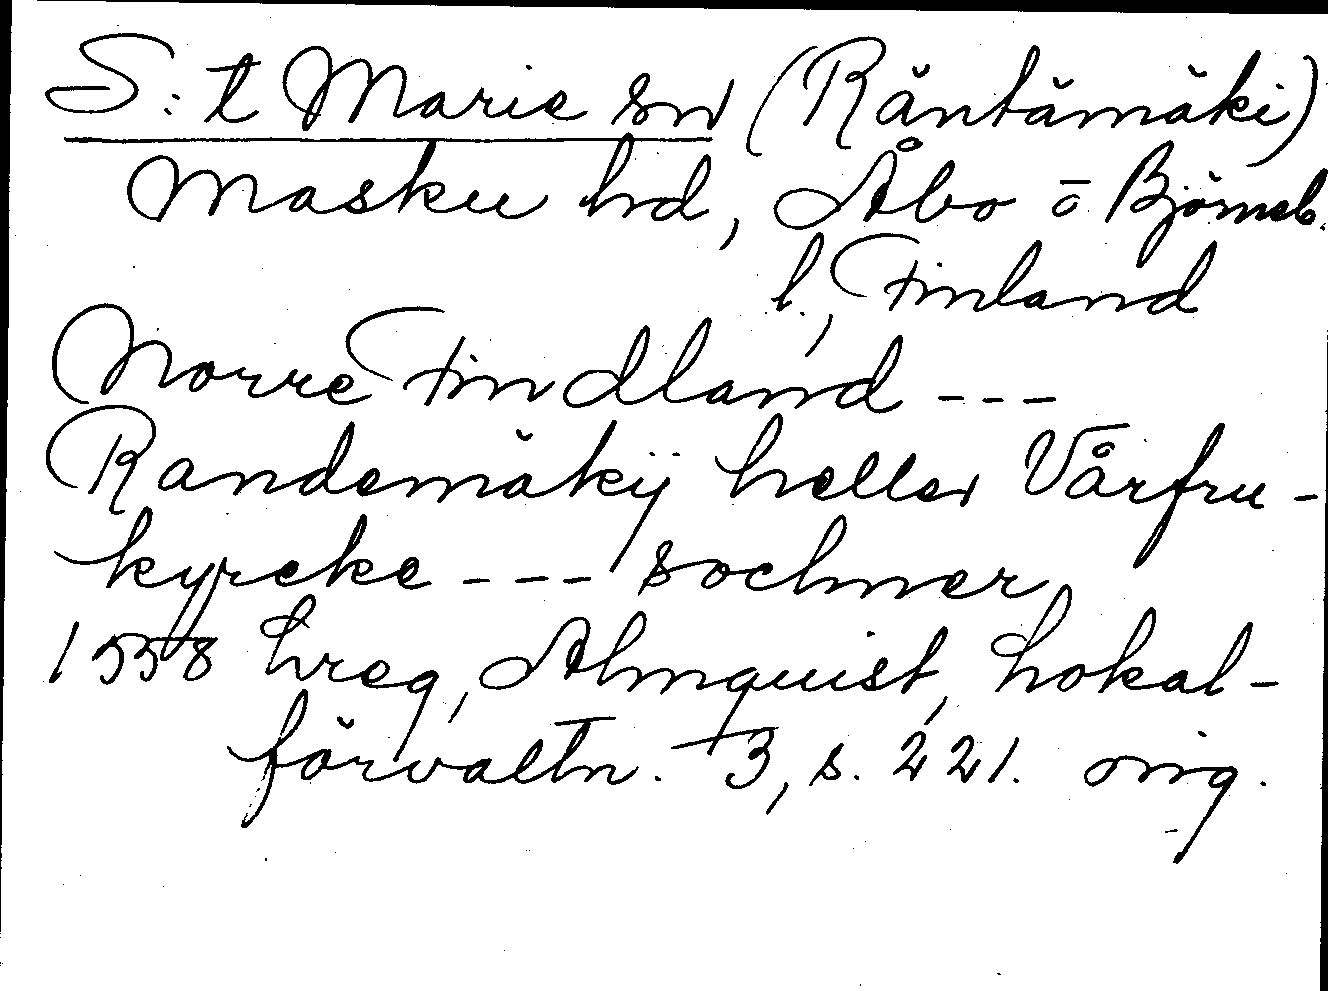 S:t Marie sn (Räntämäki)
Masku hd, Åbo o Björneb.
l., Finland
Norre Findland ---
Randemäkÿ heller Vårfru-
kyrcke --- sochner
1558 hreg, Almquist, Lokal-
förvaltn. 3, s. 221. orig.